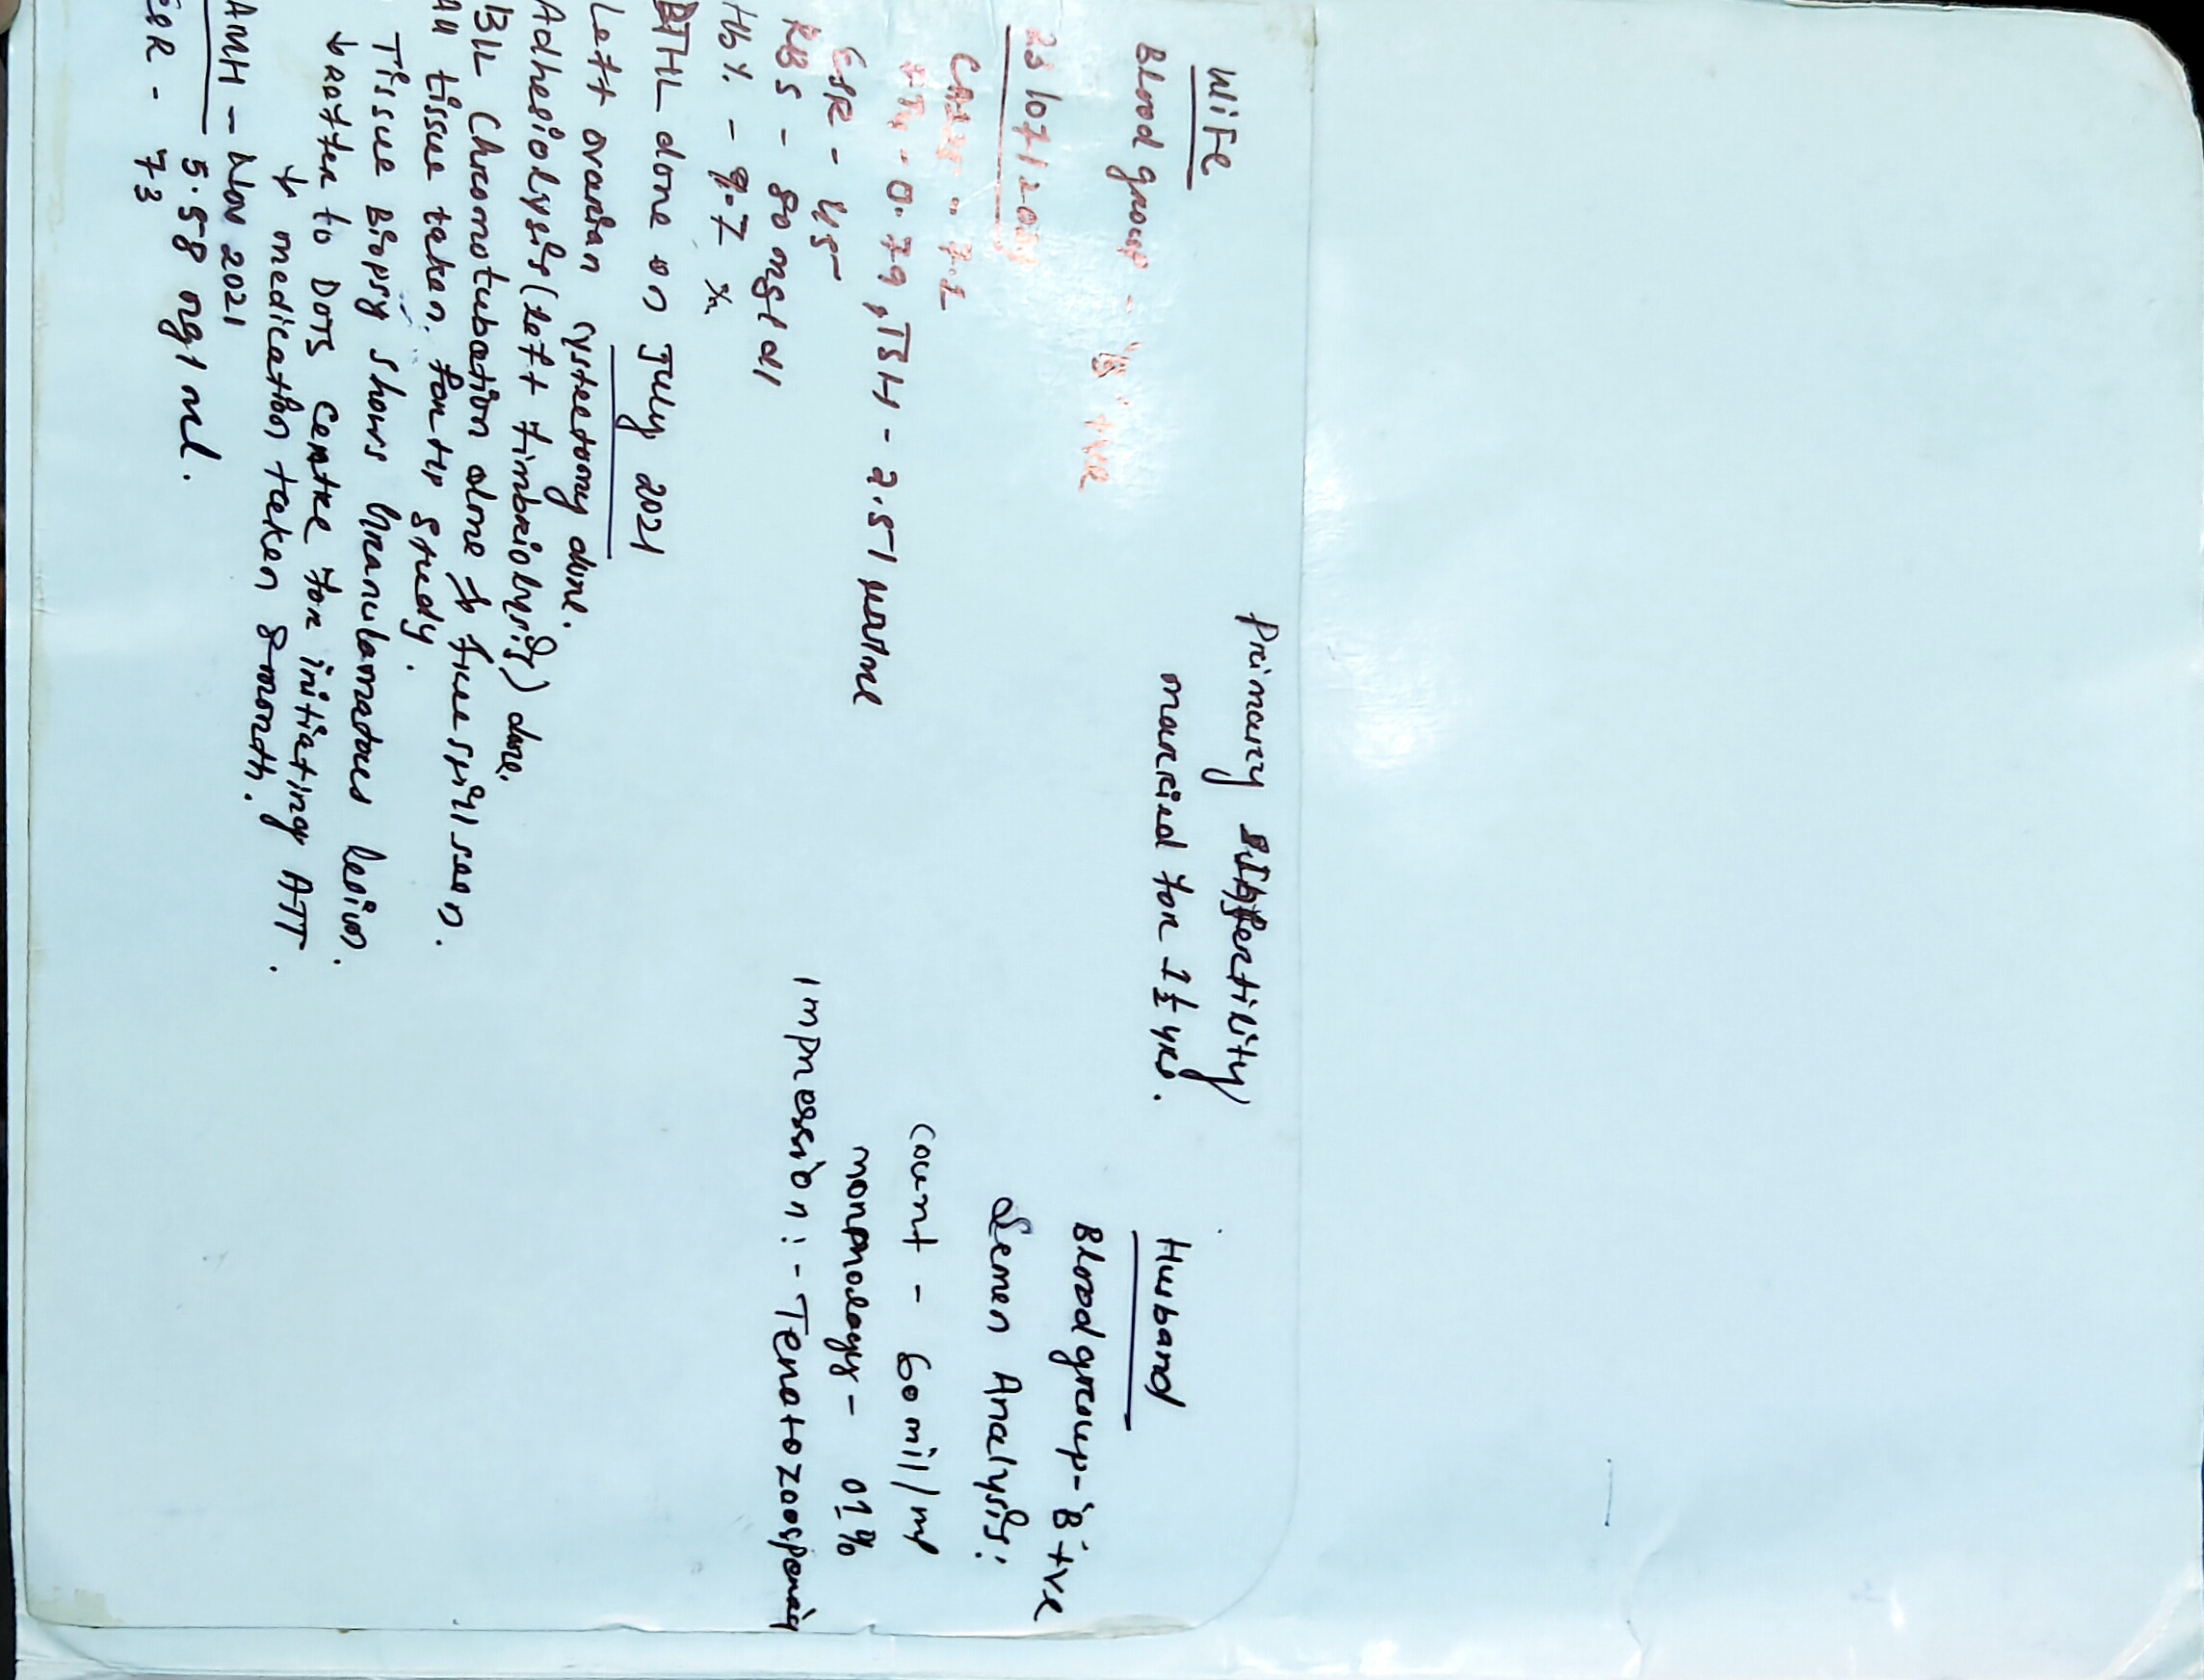 Primary Subfertility
married for 1½ yrs.
Wife
Blood group - 'B' +ve
23/07/2021
CA125 - 7.2
FT4 - 0.79, TSH - 2.51 μIU/ml
ESR - 45
RBS - 80 mg/dl
Hb% - 9.7 %
DTHL done on July 2021
Left ovarian cystectomy done.
Adhesiolysis (Left fimbriolysis) done.
B/L Chromotubation done → free spill seen.
All tissue taken for HP study.
Tissue Biopsy shows Granulomatous lesion.
↓ Ratten to DOTS Centre for initiating ATT.
↓ medication taken 8 month.
AMH - Nov 2021
5.58 ng/ml.
ESR - 73
Husband
Blood group - 'B' +ve
Semen Analysis:
Count - 60 mill/ml
monpnology - 01%
Impression: - Tenatozoospenaiy